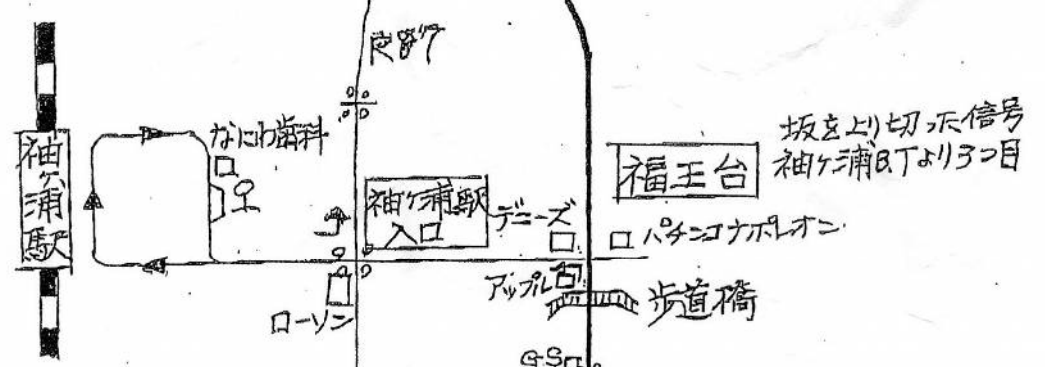 R87
なにわ歯科
袖ヶ浦駅
袖ヶ浦駅
入口
デニーズ
福王台
坂を上り切った信号
袖ヶ浦B.Tより3つ目
パチンコナポレオン
アップル
歩道橋
ローソン
G.S